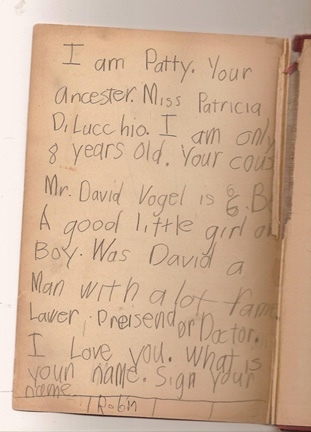 I am Patty. Your
ancester. Miss Patricia
DiLucchio. I am only
8 years old. Your cous
Mr. David Vogel is 6. B
A good little girl or
Boy. Was David a
Man with a lot fame
Lawer, Preisend or Doctor.
I Love you. What is
your name. Sign your
name
Robin